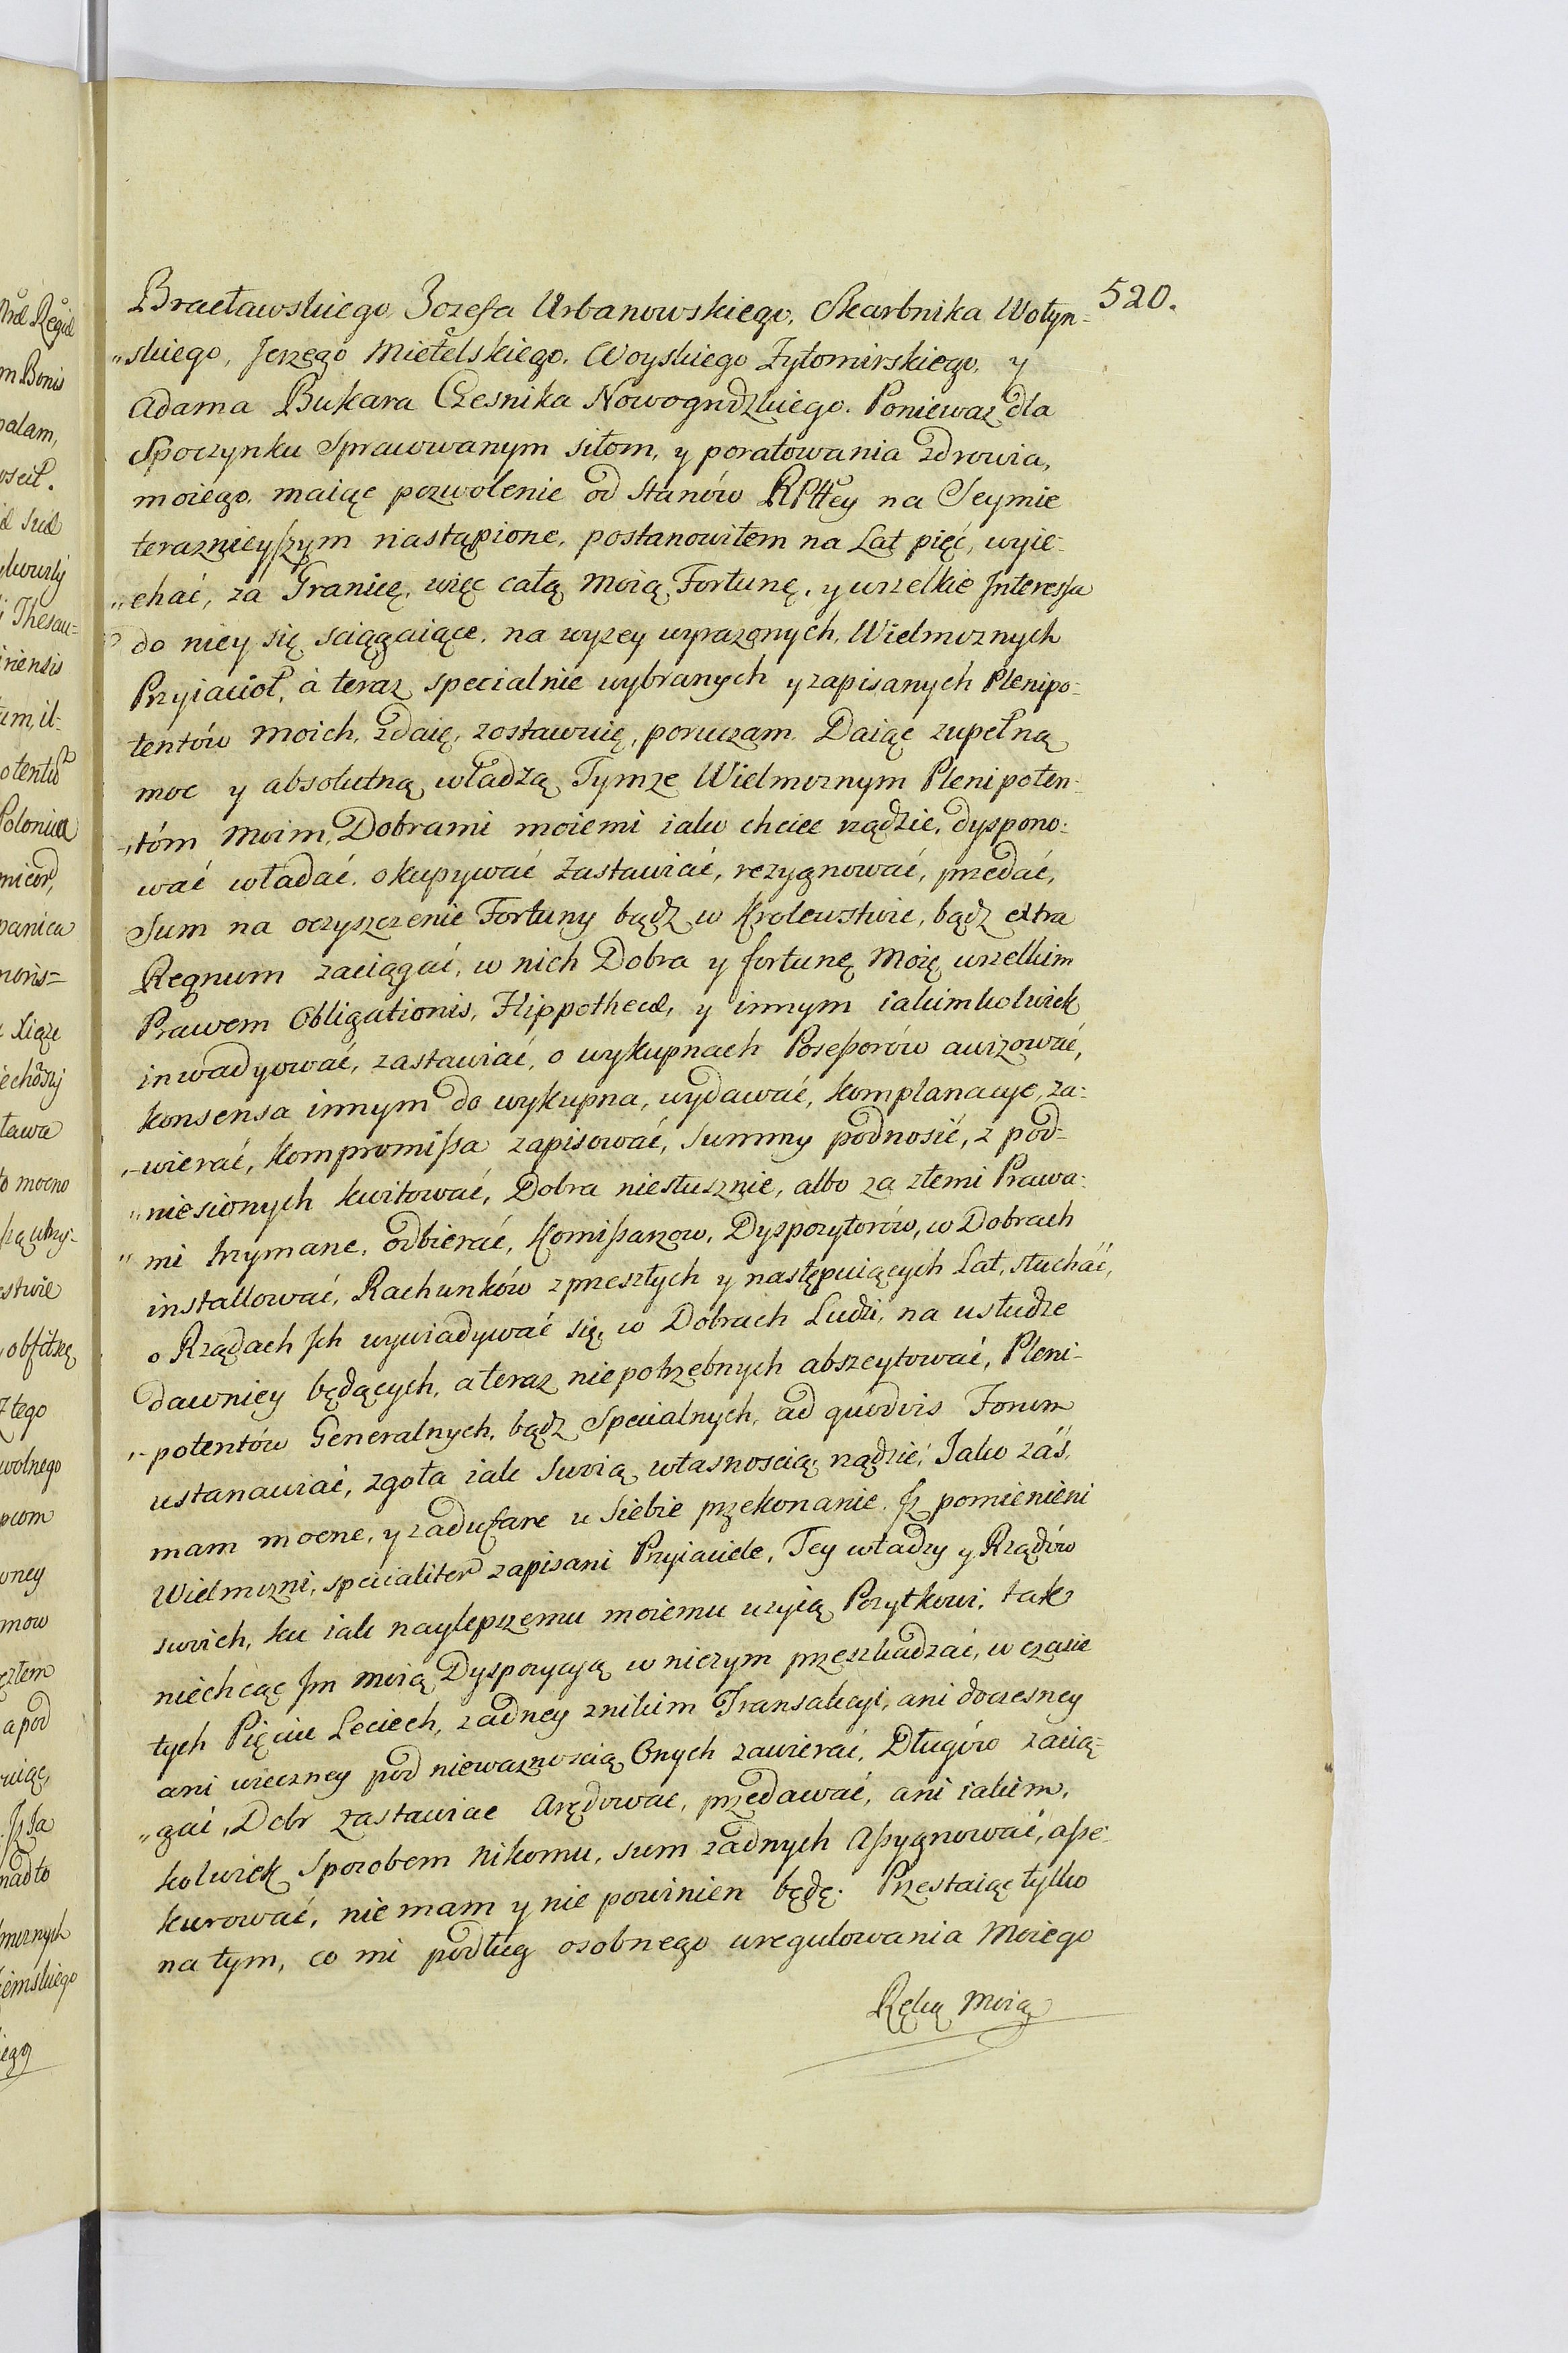 520.
Bracławskiego, Jozefa Urbanowskiego, Skarbnika Wołyn=
"skiego, Jerzego Mietelskiego, Woyskiego Zytomirskiego, y
Adama Bukara Czesnika Nowogrdzkiego. Poniewaz dla
Spoczynku Sprawowanym siłom, y poratowania zdrowia,
moiego, maiąc pozwolenie od Stanów RPttey na Seymie
teraznieyszym nastąpione, postanowiłem na Lat pięć, wyie-
"chać, za Granicę, więc całą moią Fortunę, y wszelkie Interessa
do niey się sciągaiące, na wyzey wyrazonych, Wielmoznych
Przyiacioł, à teraz specialnie wybranych y zapisanych Plenipo-
tentów moich, zdaię, zostawuię, poruczam. Daiąc zupełną
moc y absolutną władzą Tymze Wielmoznym Plenipoten-
"tóm moim, Dobrami moiemi iako chcieć rządzić, dyspono-
wać władać, okupywać zastawiać, rezygnować, przedać,
Sum na oczyszczenie Fortuny bądz w Krolewstwie, bądz extra
Regnum zaciągać, w nich Dobra y fortunę moię wszelkim
Prawem Obligationis, Hippothecæ, y innym iakimkolwiek
inwadyować, zastawiać, o wykupnach Possessorów awizować,
konsensa innym do wykupna, wydawać, komplanacye, za-
"wierać, kompromissa zapisować, summy podnosić, z pod-
"niesionych kwitować, Dobra niesłusznie, albo za złemi Prawa-
" mi trzymane, odbierać, Komissarzow, Dyspozytorów, w Dobrach
installować, Rachunków zprzeszłych y następuiących Lat, słuchać,
o Rządach Ich wywiadywać się, w Dobrach Ludzi, na usłudze
dawniey będących, a teraz niepotrzebnych abszeytować, Pleni-
"potentów Generalnych, bądz Specialnych, ad quodvis Forum
ustanawiać, zgoła iak swoią własnoscią rządzić, Jako záś,
mam mocne, y zadufane u Siebie przekonanie, Jz pomienieni
Wielmozni, specialiter zapisani Przyiaciele, Tey władzy y Rządów
swoich, ku iak naylepszemu moiemu uzyią Pozytkowi, tak
niechcąc Im moią Dyspozycyą w niczym przeszkadzać, w czasie
tych Pięciu Leciech, zadney znikim Transakcyi, ani doczesney
ani wieczney pod niewaznoscią Onych zawierać, Długów zacią-
"gać, Dobr zastawiac Arędowac, przedawać, ani iakim,
kolwiek Sposobem nikomu, sum zadnych Assygnować, asse-
kurować, nie mam y nie powinien będę. Przestaiąc tylko
na tym, co mi podług osobnego uregulowania Moiego
Ręką Moią